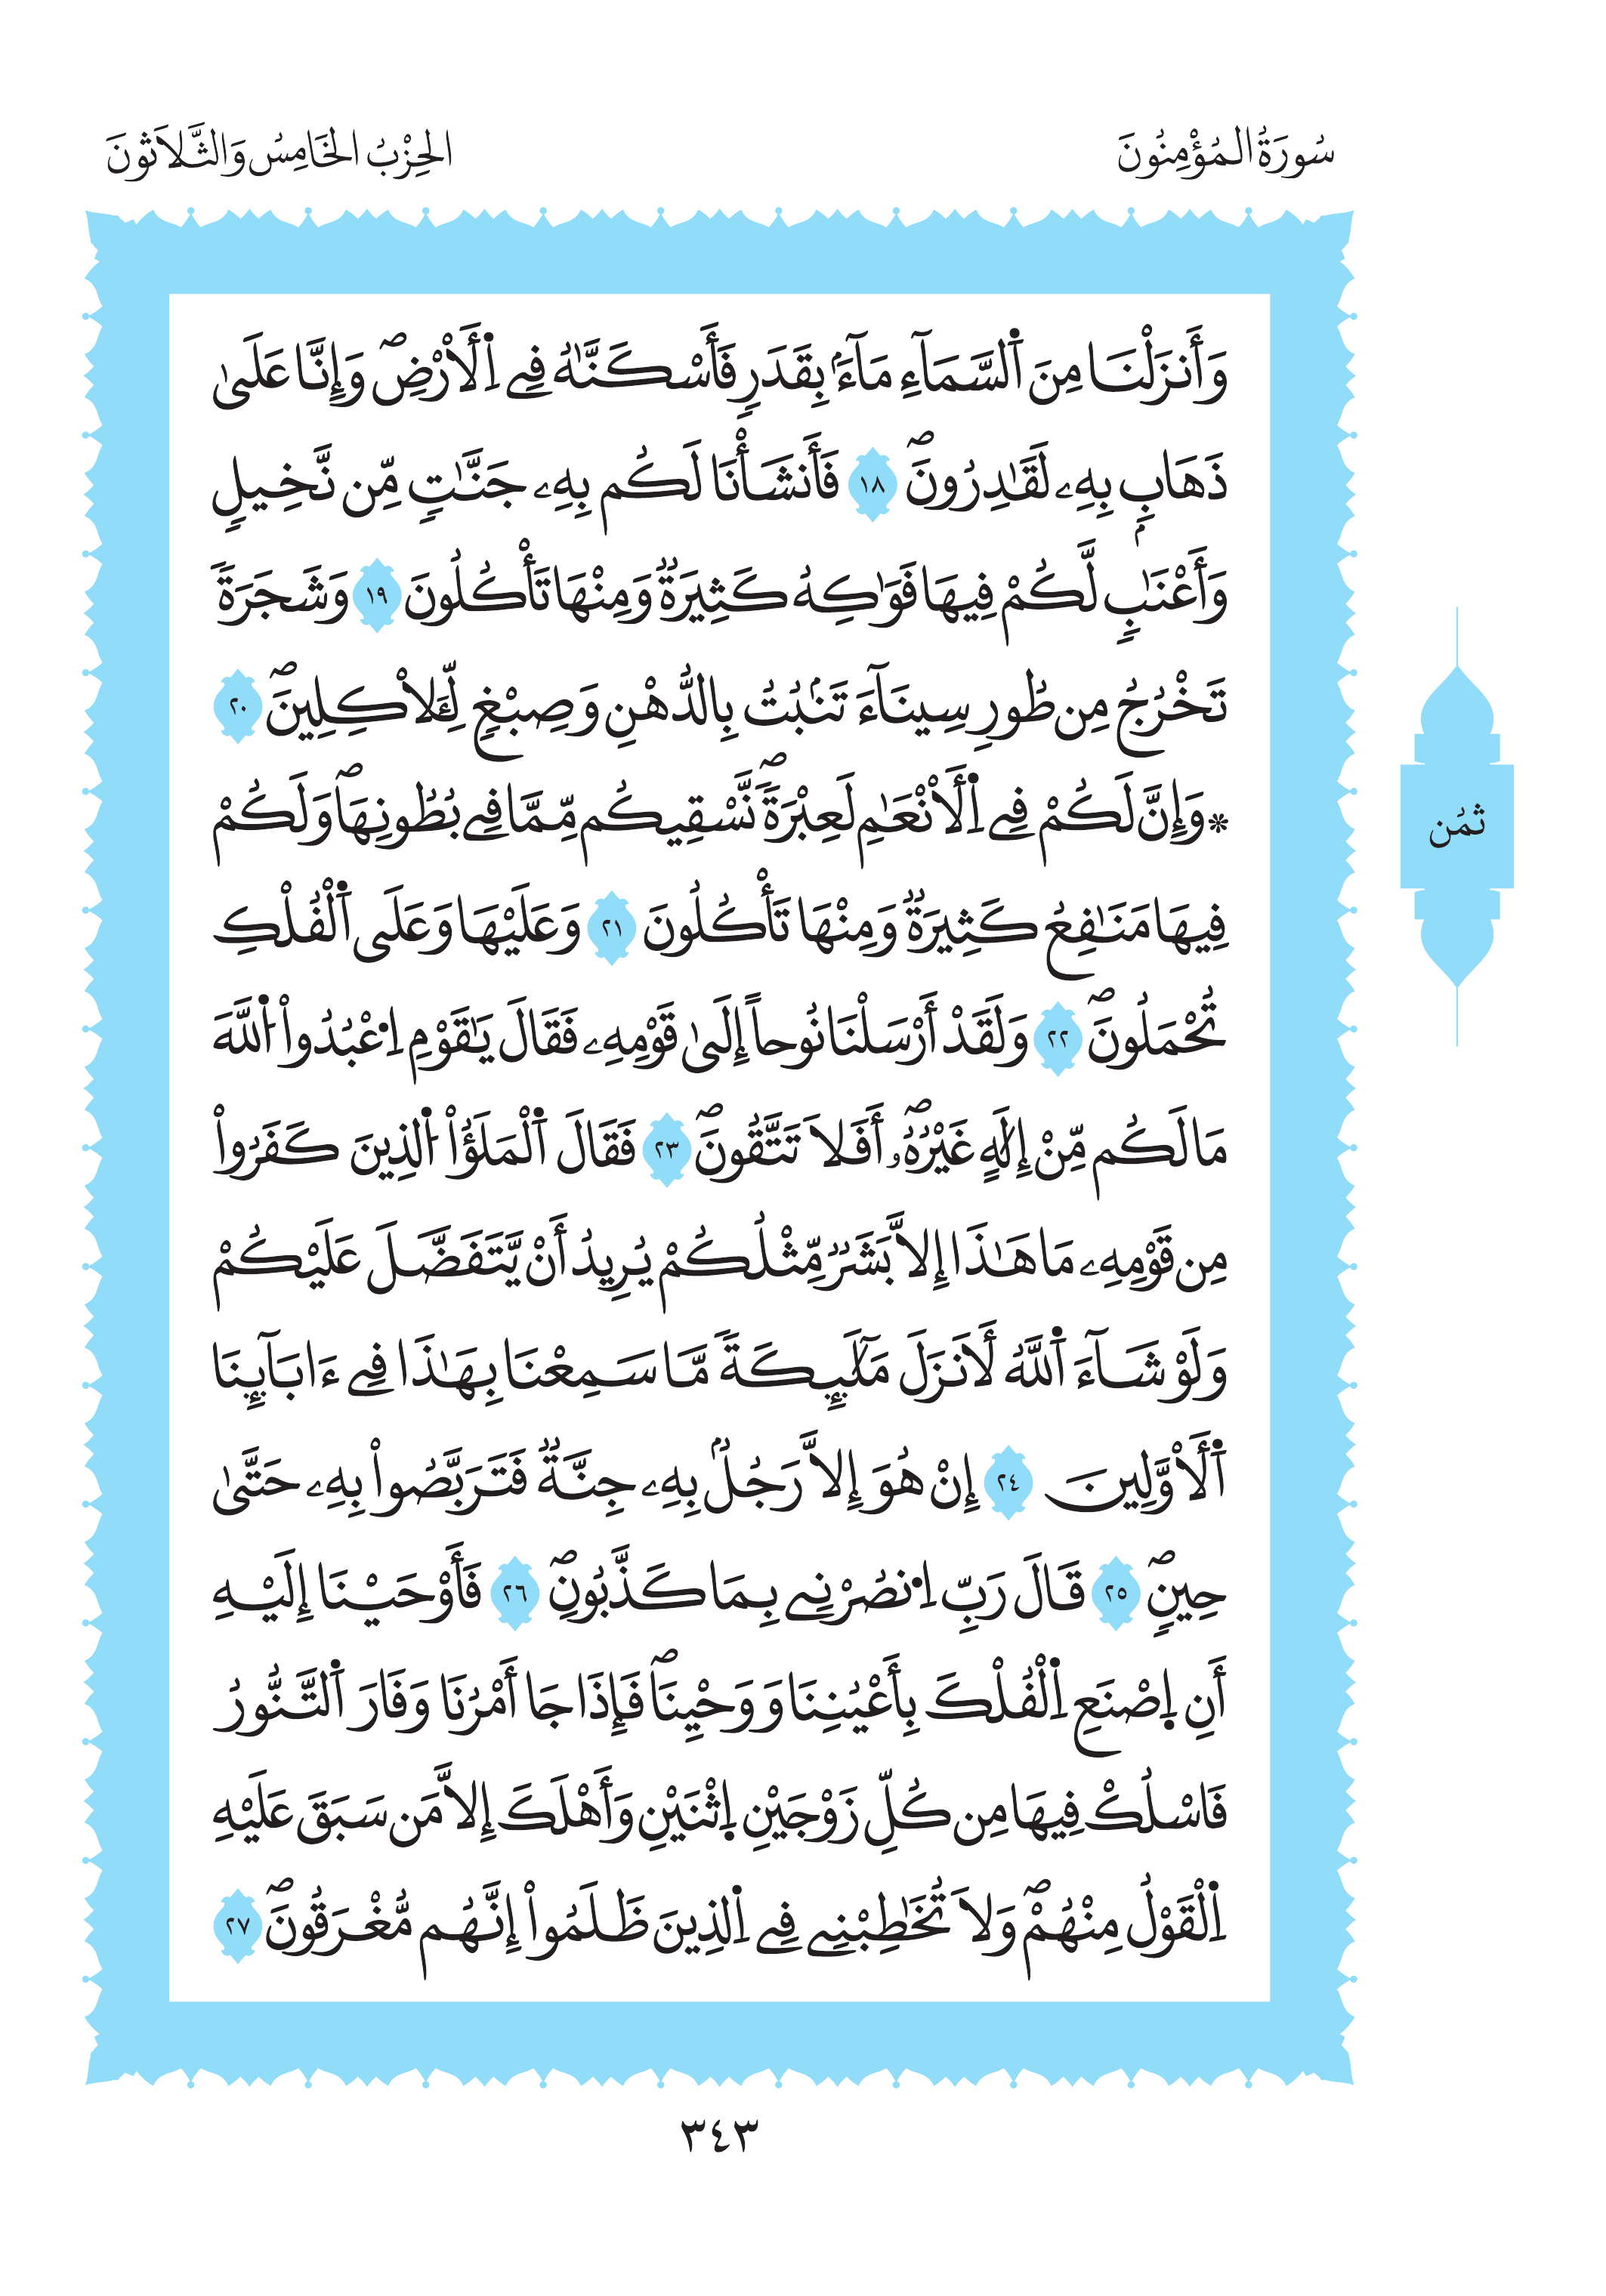 سُورَةُ الْمُؤْمِنُونَ
الحِزْبُ الْخَامِسُ وَالثَّلَاثُونَ
وَأَنزَلْنَا مِنَ اَ۬لسَّمَآءِ مَآءَۢ بِقَدَرٖ فَأَسْكَنَّٰهُ فِے اِ۬لَارْضِۖ وَإِنَّا عَلَىٰ
ذَهَابِۢ بِهِۦ لَقَٰدِرُونَۖ ١٨ فَأَنشَأْنَا لَكُم بِهِۦ جَنَّٰتٖ مِّن نَّخِيلٖ
وَأَعْنَٰبٖ لَّكُمْ فِيهَا فَوَٰكِهُ كَثِيرَةٞ وَمِنْهَا تَأْكُلُونَ ١٩ وَشَجَرَةٗ
تَخْرُجُ مِن طُورِ سِينَآءَ تَنۢبُتُ بِالدُّهْنِ وَصِبْغٖ لِّلَاكِلِينَۖ ٢٠
۞ وَإِنَّ لَكُمْ فِے اِ۬لَانْعَٰمِ لَعِبْرَةٗۖ نَّسْقِيكُم مِّمَّا فِے بُطُونِهَاۖ وَلَكُمْ
فِيهَا مَنَٰفِعُ كَثِيرَةٞ وَمِنْهَا تَأْكُلُونَ ٢١ وَعَلَيْهَا وَعَلَى اَ۬لْفُلْكِ
تُحْمَلُونَۖ ٢٢ وَلَقَدْ أَرْسَلْنَا نُوحاً إِلَىٰ قَوْمِهِۦ فَقَالَ يَٰقَوْمِ اِ۟عْبُدُواْ اُ۬للَّهَ
مَا لَكُم مِّنْ إِلَٰهٍ غَيْرُهُۥٓۖ أَفَلَا تَتَّقُونَۖ ٢٣ فَقَالَ اَ۬لْمَلَؤُاْ اُ۬لذِينَ كَفَرُواْ
مِن قَوْمِهِۦ مَا هَٰذَا إِلَّا بَشَرٞ مِّثْلُكُمْ يُرِيدُ أَنْ يَّتَفَضَّلَ عَلَيْكُمْ
وَلَوْ شَآءَ اَ۬للَّهُ لَأَنزَلَ مَلَٰٓئِكَةٗ مَّا سَمِعْنَا بِهَٰذَا فِے ءَابَآئِنَا
اَ۬لَاوَّلِينَ ٢٤ إِنْ هُوَ إِلَّا رَجُلُۢ بِهِۦ جِنَّةٞ فَتَرَبَّصُواْ بِهِۦ حَتَّىٰ
حِينٖۖ ٢٥ قَالَ رَبِّ اِ۟نصُرْنِے بِمَا كَذَّبُونِۖ ٢٦ فَأَوْحَيْنَا إِلَيْهِ
أَنِ اِ۪صْنَعِ اِ۬لْفُلْكَ بِأَعْيُنِنَا وَوَحْيِنَاۖ فَإِذَا جَا أَمْرُنَا وَفَارَ اَ۬لتَّنُّورُ
فَاسْلُكْ فِيهَا مِن كُلِّ زَوْجَيْنِ اِ۪ثْنَيْنِ وَأَهْلَكَ إِلَّا مَن سَبَقَ عَلَيْهِ
اِ۬لْقَوْلُ مِنْهُمْۖ وَلَا تُخَٰطِبْنِے فِے اِ۬لذِينَ ظَلَمُواْ إِنَّهُم مُّغْرَقُونَۖ ٢٧
ثُمُن
٣٤٣